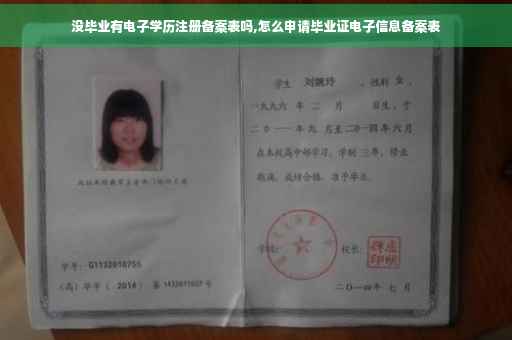 没毕业有电子学历注册备案表吗,怎么申请毕业证电子信息备案表
学生 刘婉玲 ，性别 女 ，
一九九六 年 二 月 日生，于
二〇一一年九 月至二〇一四年 六 月
在本校高中部学习，学制 三年，修业
期满，成绩合格，准予毕业。
学校： 校长：
学号：G1132010755
（高）毕字（ 2014 ）第 1432011007 号
二〇一四年 七 月